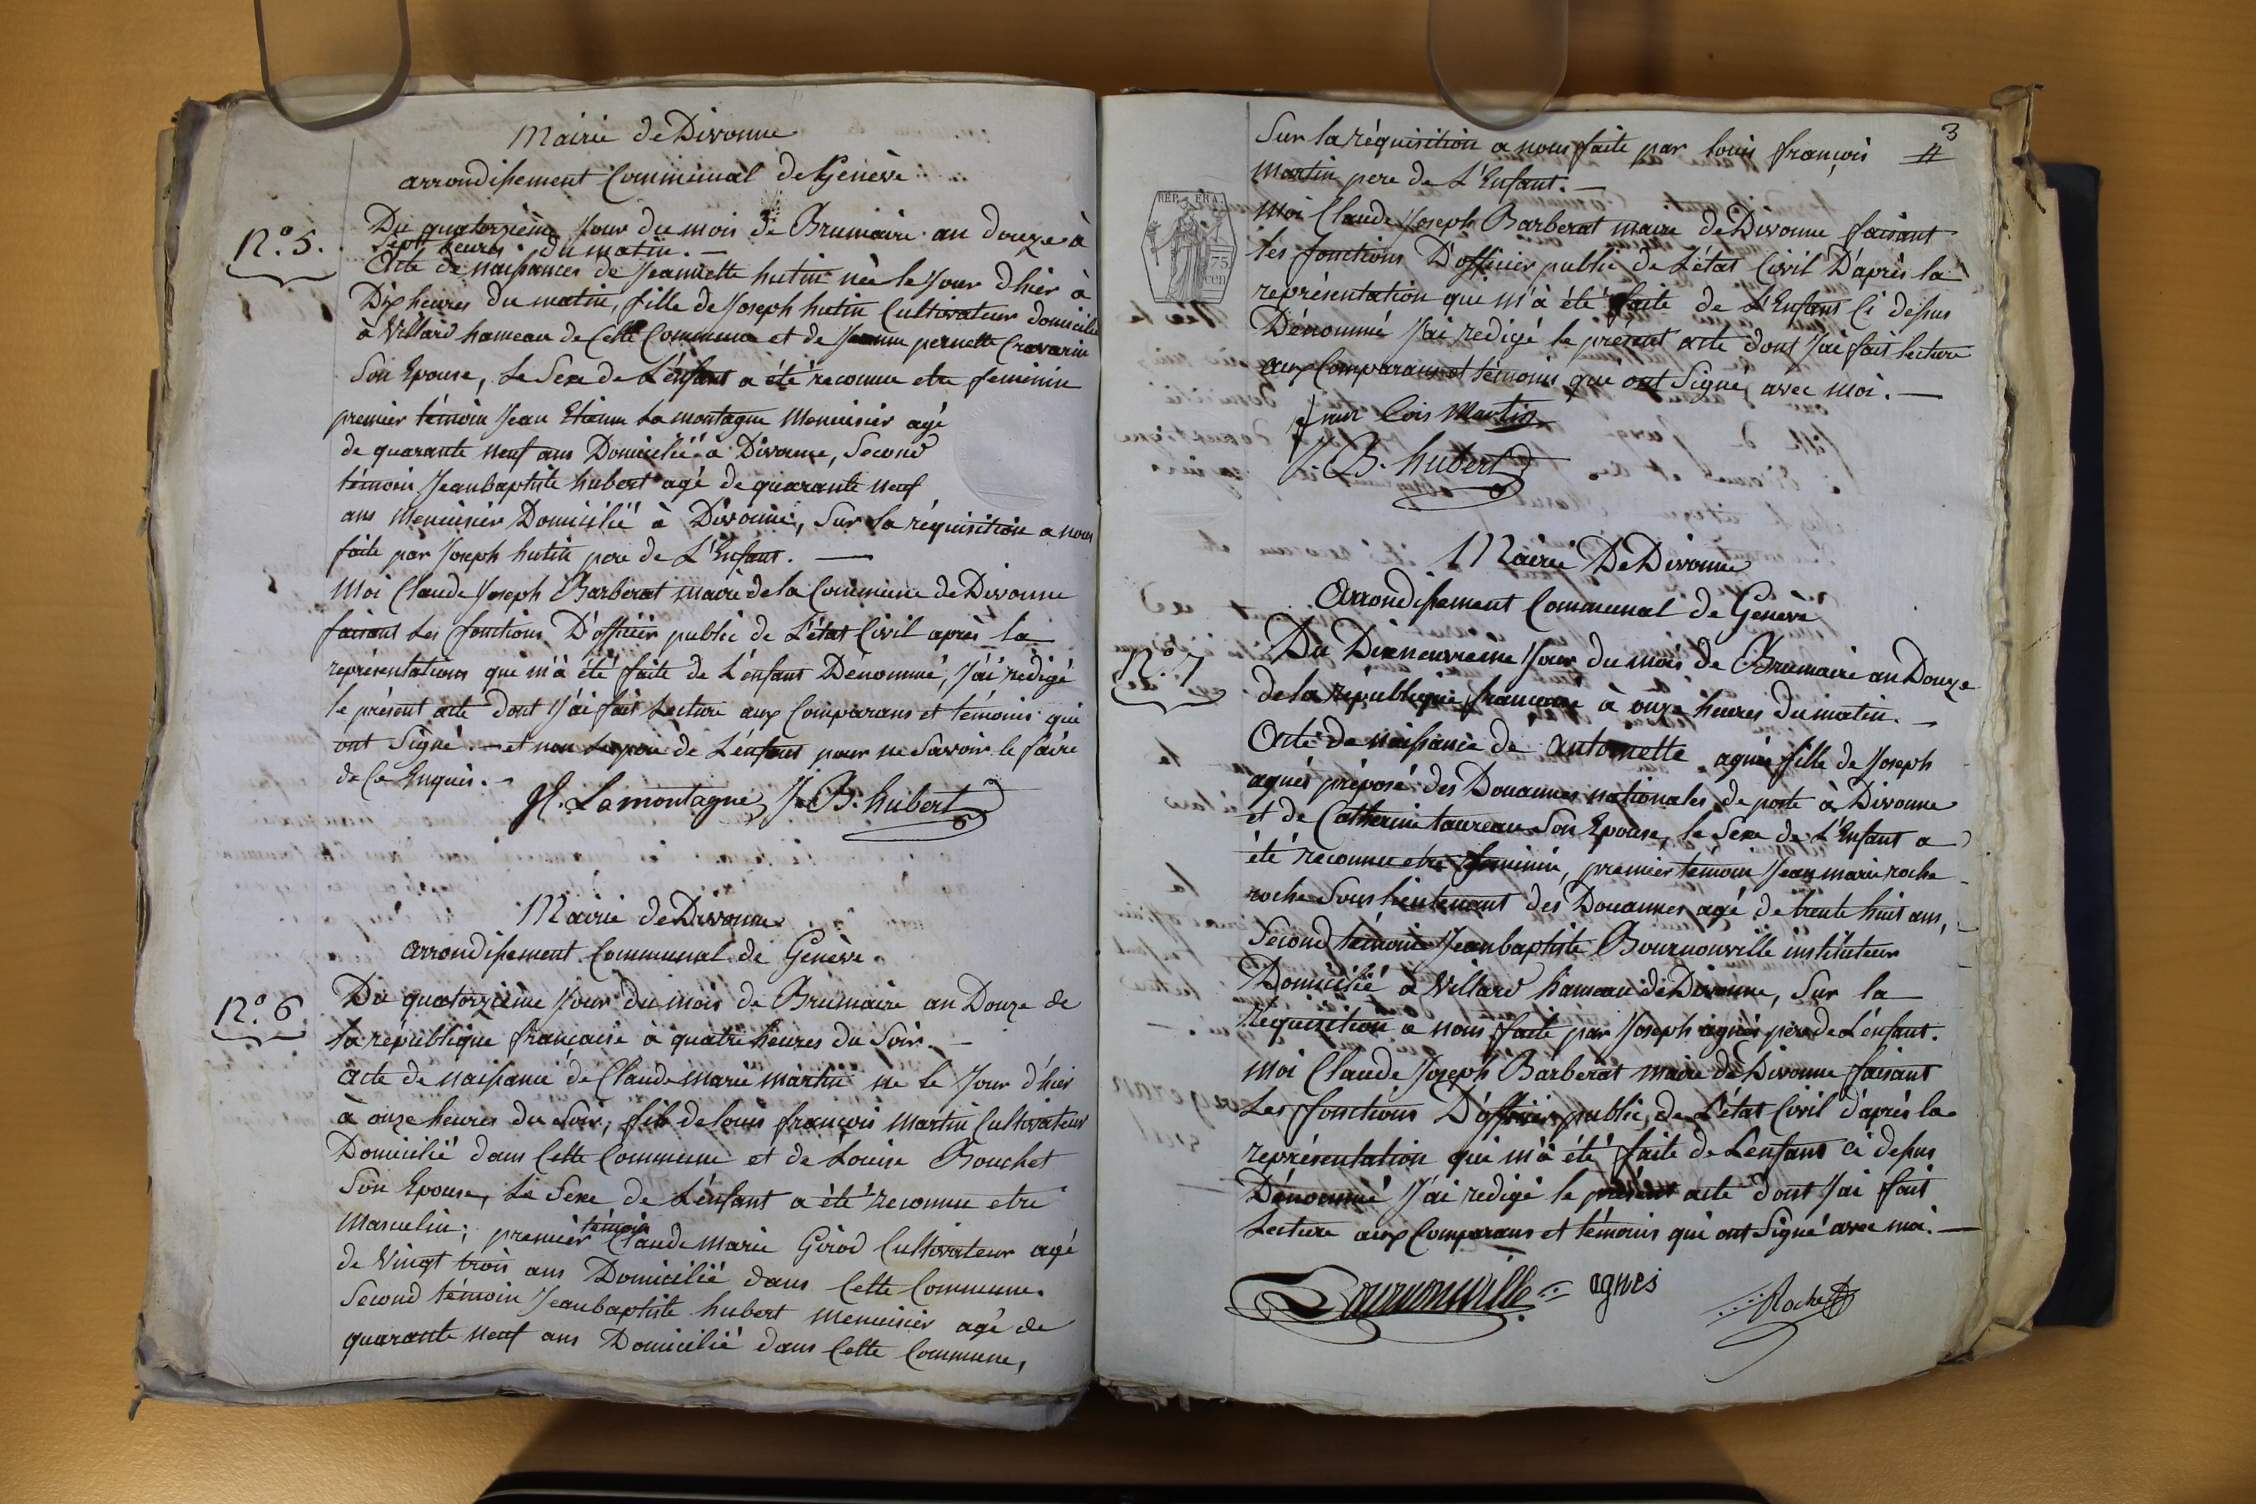 Mairie de Divonne
arrondissement Communal de Genève
N.° 5.
Du quatorzième Jour du mois de Brumaire an douze à
Sept heures du matin. —
Acte de naissances de Jeannette hutin née le Jour d'hier à
Dix heures du matin, fille de Joseph hutin Cultivateur domicilié
à Villard hameau de Cette Commune et de Jeanne pernette Cravarin
Son Epouse, Le Sexe de L'enfant a été reconnu etre feminin
premier témoin Jean Etienne Lamontagne Menuisier agé
de quarante neuf ans Domicilié à Divonne, Second
témoin Jeanbaptiste hubert agé de quarante neuf
ans menuisier Domicilié à Divonne, Sur La réquisition a nous
faite par Joseph hutin pere de L'Enfant. —
Moi Claude Joseph Barberat maire de la Commune de Divonne
faisant Les fonctions D'officier public de L'état Civil après la
représentations que m'à été faite de L'énfant Dénommé, J'ai rédigé
le présent acte Dont J'ai fait Lecture aux Comparans et témoins qui
ont Signé. — et non Le pere de L'énfant pour ne Savoir le faire
de Ce Enquis. —
Jt. Lamontagne J. B. hubert
Mairie de Divonne
arrondissement Communal de Genève
N.° 6
Du quatorzième Jour du mois de Brumaire an Douze de
la république française à quatre heures du Soir. —
acte de naissance de Claude marie martin né le Jour d'hier
à onze heures du Soir, fils de louis françois Martin Cultivateur
Domicilié dans Cette Commune et de Louise Bouchet
Son Epouse, Le Sexe de L'énfant a été reconnu etre
Masculin; premier témoin Claude Marie Girod Cultivateur agé
de Vingt trois ans Domicilié dans Cette Commune.
Second témoin Jeanbaptiste hubert menuisier agé de
quarante neuf ans Domicilié dans Cette Commune,
3
Sur la réquisition a nous faite par louis françois
Martin pere de L'Enfant. —
REP. FRA.
75
cen
Moi Claude Joseph Barberat maire de Divonne faisant
les fonctions D'officier public de L'état Civil D'après la
représentation qui m'à été faite de L'Enfant Ci dessus
Dénommé J'ai redigé le présent acte dont J'ai fait lecture
aux Comparans et témoins qui ont Signé avec moi. —
Cois Martin
J. B. hubert
Mairie De Divonne
Arrondissement Communal de Genève
N.° 7
Du Dixneuvieme Jour du mois de Brumaire an Douze
de la république francaise à onze heures du matin. —
Acte de naissance de antoinette agnès fille de Joseph
agnés préposé des Douannes nationales de poste à Divonne
et de Catherine taureau Son Epouse, le Sexe de L'Enfant a
été reconnu etre feminin, premier témoin Jean marie roche
roche Sous lieutenant des Douannes agé de trente huit ans,
Second témoin Jeanbaptiste Bournonville instituteur
Domicilié à Villard hameau de Divonne, Sur la
Réquisition a nous faite par Joseph agnès père de L'énfant.
Moi Claude Joseph Barberat maire de Divonne faisant
Les fonctions D'officier public de L'état Civil d'après la
représentation qui m'à été faite de L'enfant ci dessus
Dénommé J'ai redigé le présent acte dont J'ai fait
Lecture aux Comparans et témoins qui ont Signé avec moi. —
Bournonville agnés Roche